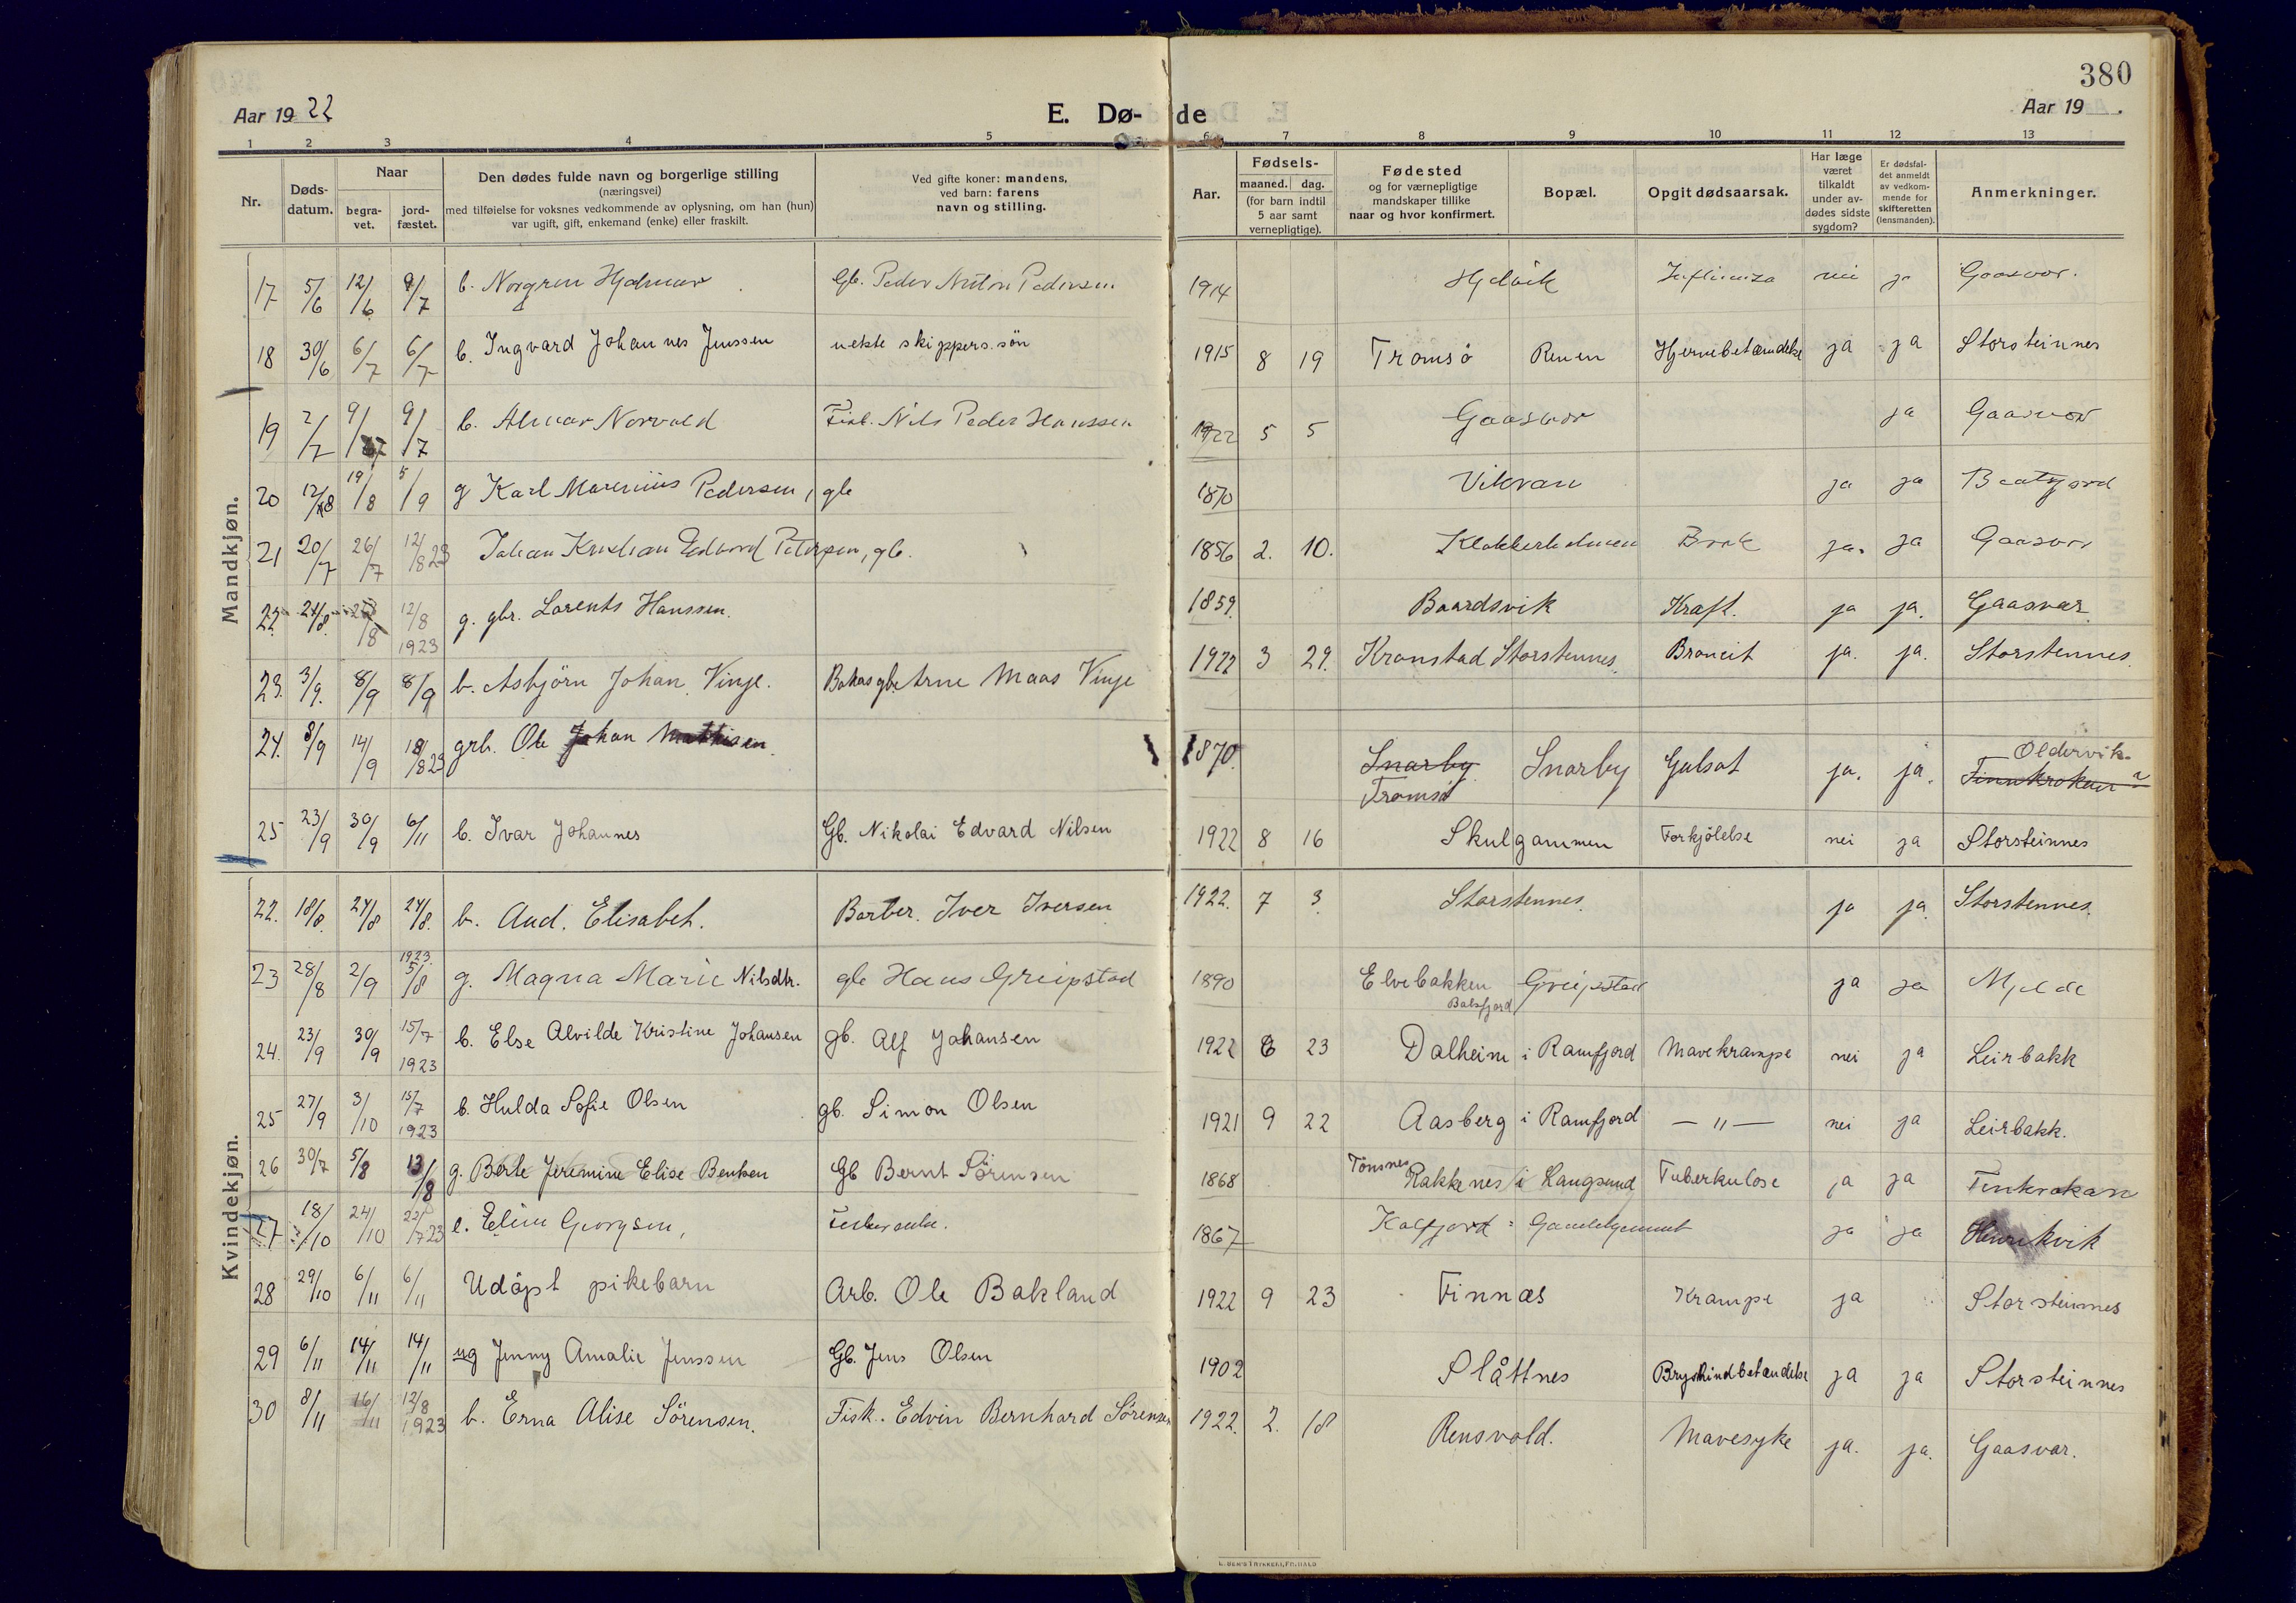 380
Aar 19 22
E. Dø-
de
Aar 19 .
1 2 3 4 5 6 7 8 9 10 11 12 13
Nr.
Døds-
datum.
Naar
begra-
vet.
jord-
fæstet.
Den dødes fulde navn og borgerlige stilling
(næringsvei)
med tilføielse for voksnes vedkommende av oplysning, om han (hun)
var ugift, gift, enkemand (enke) eller fraskilt.
Ved gifte koner: mandens,
ved barn: farens
navn og stilling.
Aar.
Fødsels-
maaned. dag.
(for barn indtil
5 aar samt
vernepligtige).
Fødested
og for værnepligtige
mandskaper tillike
naar og hvor konfirmert.
Bopæl.
Opgit dødsaarsak.
Har læge
været
tilkaldt
under av-
dødes sidste
sygdom?
Er dødsfal-
det anmeldt
av vedkom-
mende for
skifteretten
(lensmanden).
Anmerkninger.
Mandkjøn.
17 5/6 12/6 9/7 b. Norgren Hjalmar Gb. Peder Anton Pedersen 1914 Hjelvik Influenza nei ja Gaasvær.
18 30/6 6/7 6/7 b. Ingvard Johannes Jenssen uekte skippers.søn 1915 8 19 Tromsø Renen Hjernebetændelse ja ja Storsteinnes
19 2/7 9/7 9/7 b. Almar Norvald Fisk. Nils Peder Hanssen 1922 5 5 Gaasvær ja Gaasvær
20 12/8 19/8 5/9 g Karl Marenius Pedersen, gb 1870 Vikran ja ja
21 20/7 26/7 12/8 23 Johan Kristian Edvard Petersen, gb. 1856 2. 10. Klokkerholmen Brok ja. ja Gaasvær
22 24/8 /8 12/8 1923 g. gbr. Lorents Hanssen. 1859. Baardsvik Kræft. ja ja. Gaasvær
23. 3/9. 8/9 8/9 b. Asbjörn Johan Vinje. Arne Maas Vinje 1922 3 29. Kronstad Storstennes. Broncit ja. ja. Storstennes.
24. 8/9 14/9 18/8 23 grb. Ole Johan Mathisen. 1870. Snarby Tromsö Snarby Gulsot ja. ja. Finnkroken Oldervik
25 23/9 30/9 6/11 b. Ivar Johannes Gb. Nikolai Edvard Nilsen 1922 8 16 Skulgammen Forkjölelse nei ja Storsteinnes
Kvindekjøn.
22. 18/8. 24/8 24/8. b. Aud. Elisabet. Barber. Iver Iversen 1922. 7 3. Storstennes. ja ja. Storstennes.
23 28/8 2/9 1923. 5/8 g. Magna Marie Nilsdtr. gb Hans Greipstad 1890 Elvebakken Balsfjord Greipstad ja ja Mjelde
24. 23/9 30/9 15/7 1923 b. Else Alvilde Kristine Johansen gb. Alf Johansen 1922 8 23 Dalheim i Ramfjord Mavekrampe nei ja Leirbakk
25 27/9 3/10 15/7 1923 b. Hulda Sofie Olsen gb. Simon Olsen 1921 9 22 Aasberg i Ramfjord — " — nei ja Leirbakk.
26 30/7 5/8 13/8 g. Berle Jeremine Elise Bentsen Gb Bernt Sörensen 1868 Tönsnes Rakkenes i Langsund Tuberkulose ja ja Finkroken
27 18/10 24/10 22/7 23 e. Eline Georgsen, 1867 Kalfjord Gammelgammet ja ja Henrikvik
28 29/10 6/11 6/11 Udöpt pikebarn Arb. Ole Bakland 1922 9 23 Finnæs Krampe ja Storsteinnes
29 6/11 14/11 14/11 ug Jenny Amalie Jenssen Gb. Jens Olsen 1902 Slåttnes Brysthindbetændelse ja ja Storsteinnes
30 8/11 16/11 12/8 1923 b. Erna Alise Sörensen. Fisk. Edvin Bernhard Sörensen 1922. 2. 18 Rensvold. Mavesyke ja. ja. Gaasvær.